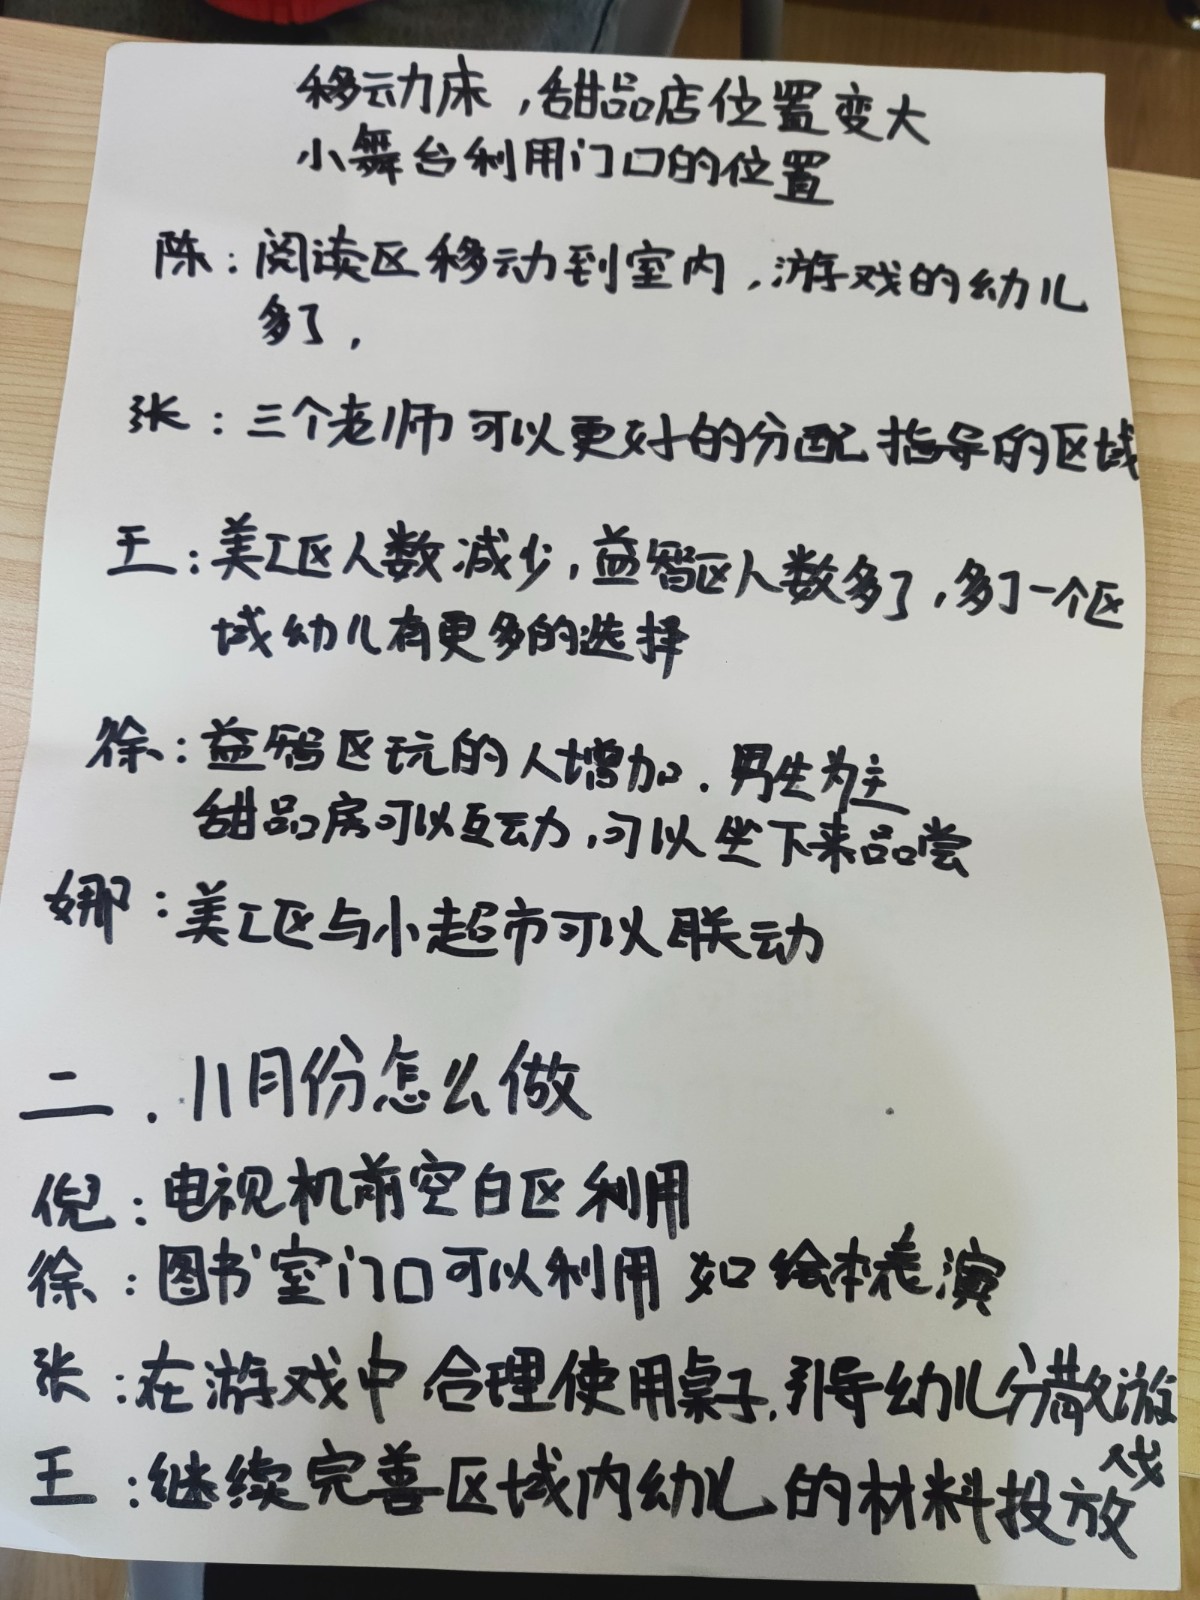 移动床，甜品店位置变大
小舞台利用门口的位置
陈：阅读区移动到室内，游戏的幼儿
多了，
张：三个老师可以更好的分配指导的区域
王：美工区人数减少，益智区人数多了，多了一个区
域幼儿有更多的选择
徐：益智区玩的人增加．男生为主
甜品房可以互动，可以坐下来品尝
娜：美工区与小超市可以联动
二．11月份怎么做
倪：电视机前空白区利用
徐：图书室门口可以利用 如绘本表演
张：在游戏中合理使用桌子，引导幼儿分散游
戏
王：继续完善区域内幼儿的材料投放